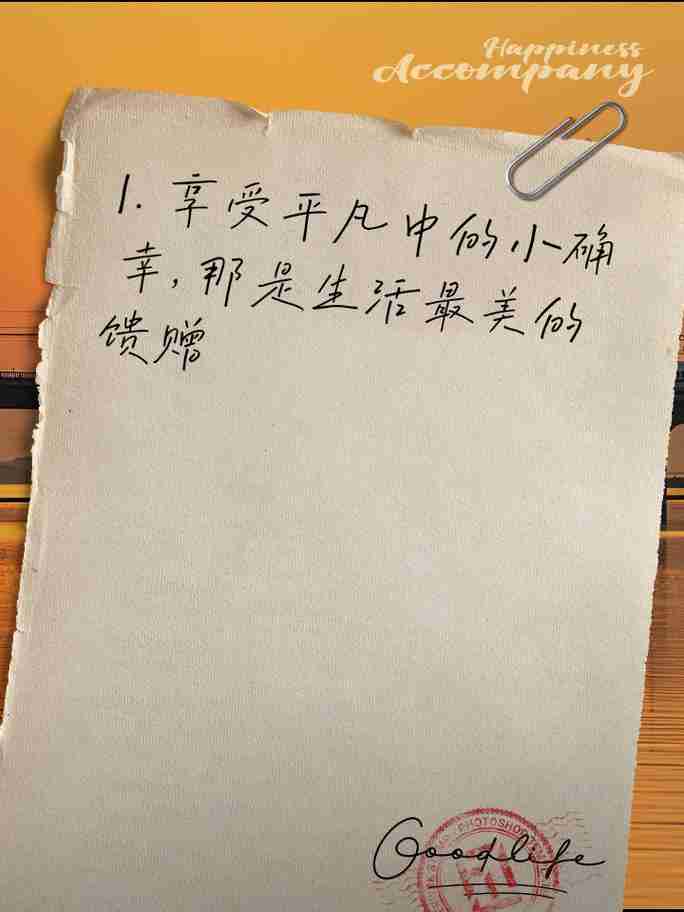 Happiness
Accompany
1. 享受平凡中的小确
幸,那是生活最美的
馈赠
PHOTOSHOP
Goodlife